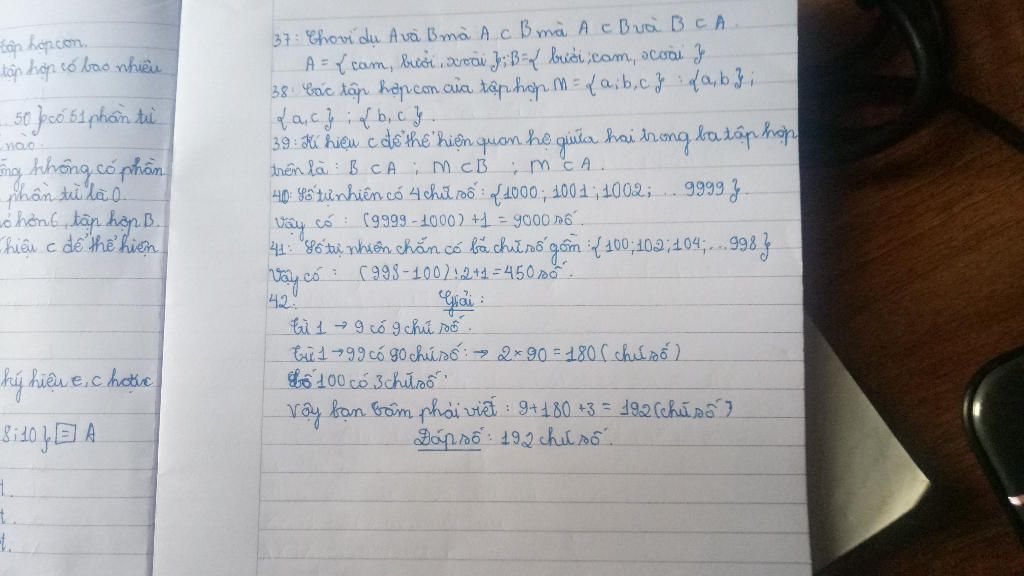 tập hợp con.
tập hợp có bao nhiêu
50} có 51 phần tử
nào.
không có phần
phần tử là 0.
hơn 6, tập hợp B.
hiệu c để thể hiện
ký hiệu e, c hoặc
8;10} = A
37: Cho ví dụ A và B mà A ⊂ B mà A ⊂ B và B ⊂ A.
A = { cam, bưởi, xoài }; B = { bưởi; cam, xoài }
38: Các tập hợp con của tập hợp M = {a; b, c } : {a, b };
{a, c } ; { b, c } .
39: Kí hiệu c để thể hiện quan hệ giữa hai trong ba tập hợp
trên là : B ⊂ A ; M ⊂ B ; M ⊂ A .
40: Số tự nhiên có 4 chữ số : {1000; 1001; 1002; ... 9999 }.
Vậy có : (9999 - 1000) + 1 = 9000 số.
41: Số tự nhiên chẵn có bâ chữ số gồm : {100; 102; 104; ... 998}
Vậy có : (998 - 100) : 2 + 1 = 450 số.
42: Giải :
Từ 1 → 9 có 9 chữ số.
Từ 1 → 99 có 90 chữ số : → 2 × 90 = 180 ( chữ số )
Số 100 có 3 chữ số.
Vậy bạn Tâm phải viết : 9 + 180 + 3 = 192 (chữ số )
Đáp số : 192 chữ số.